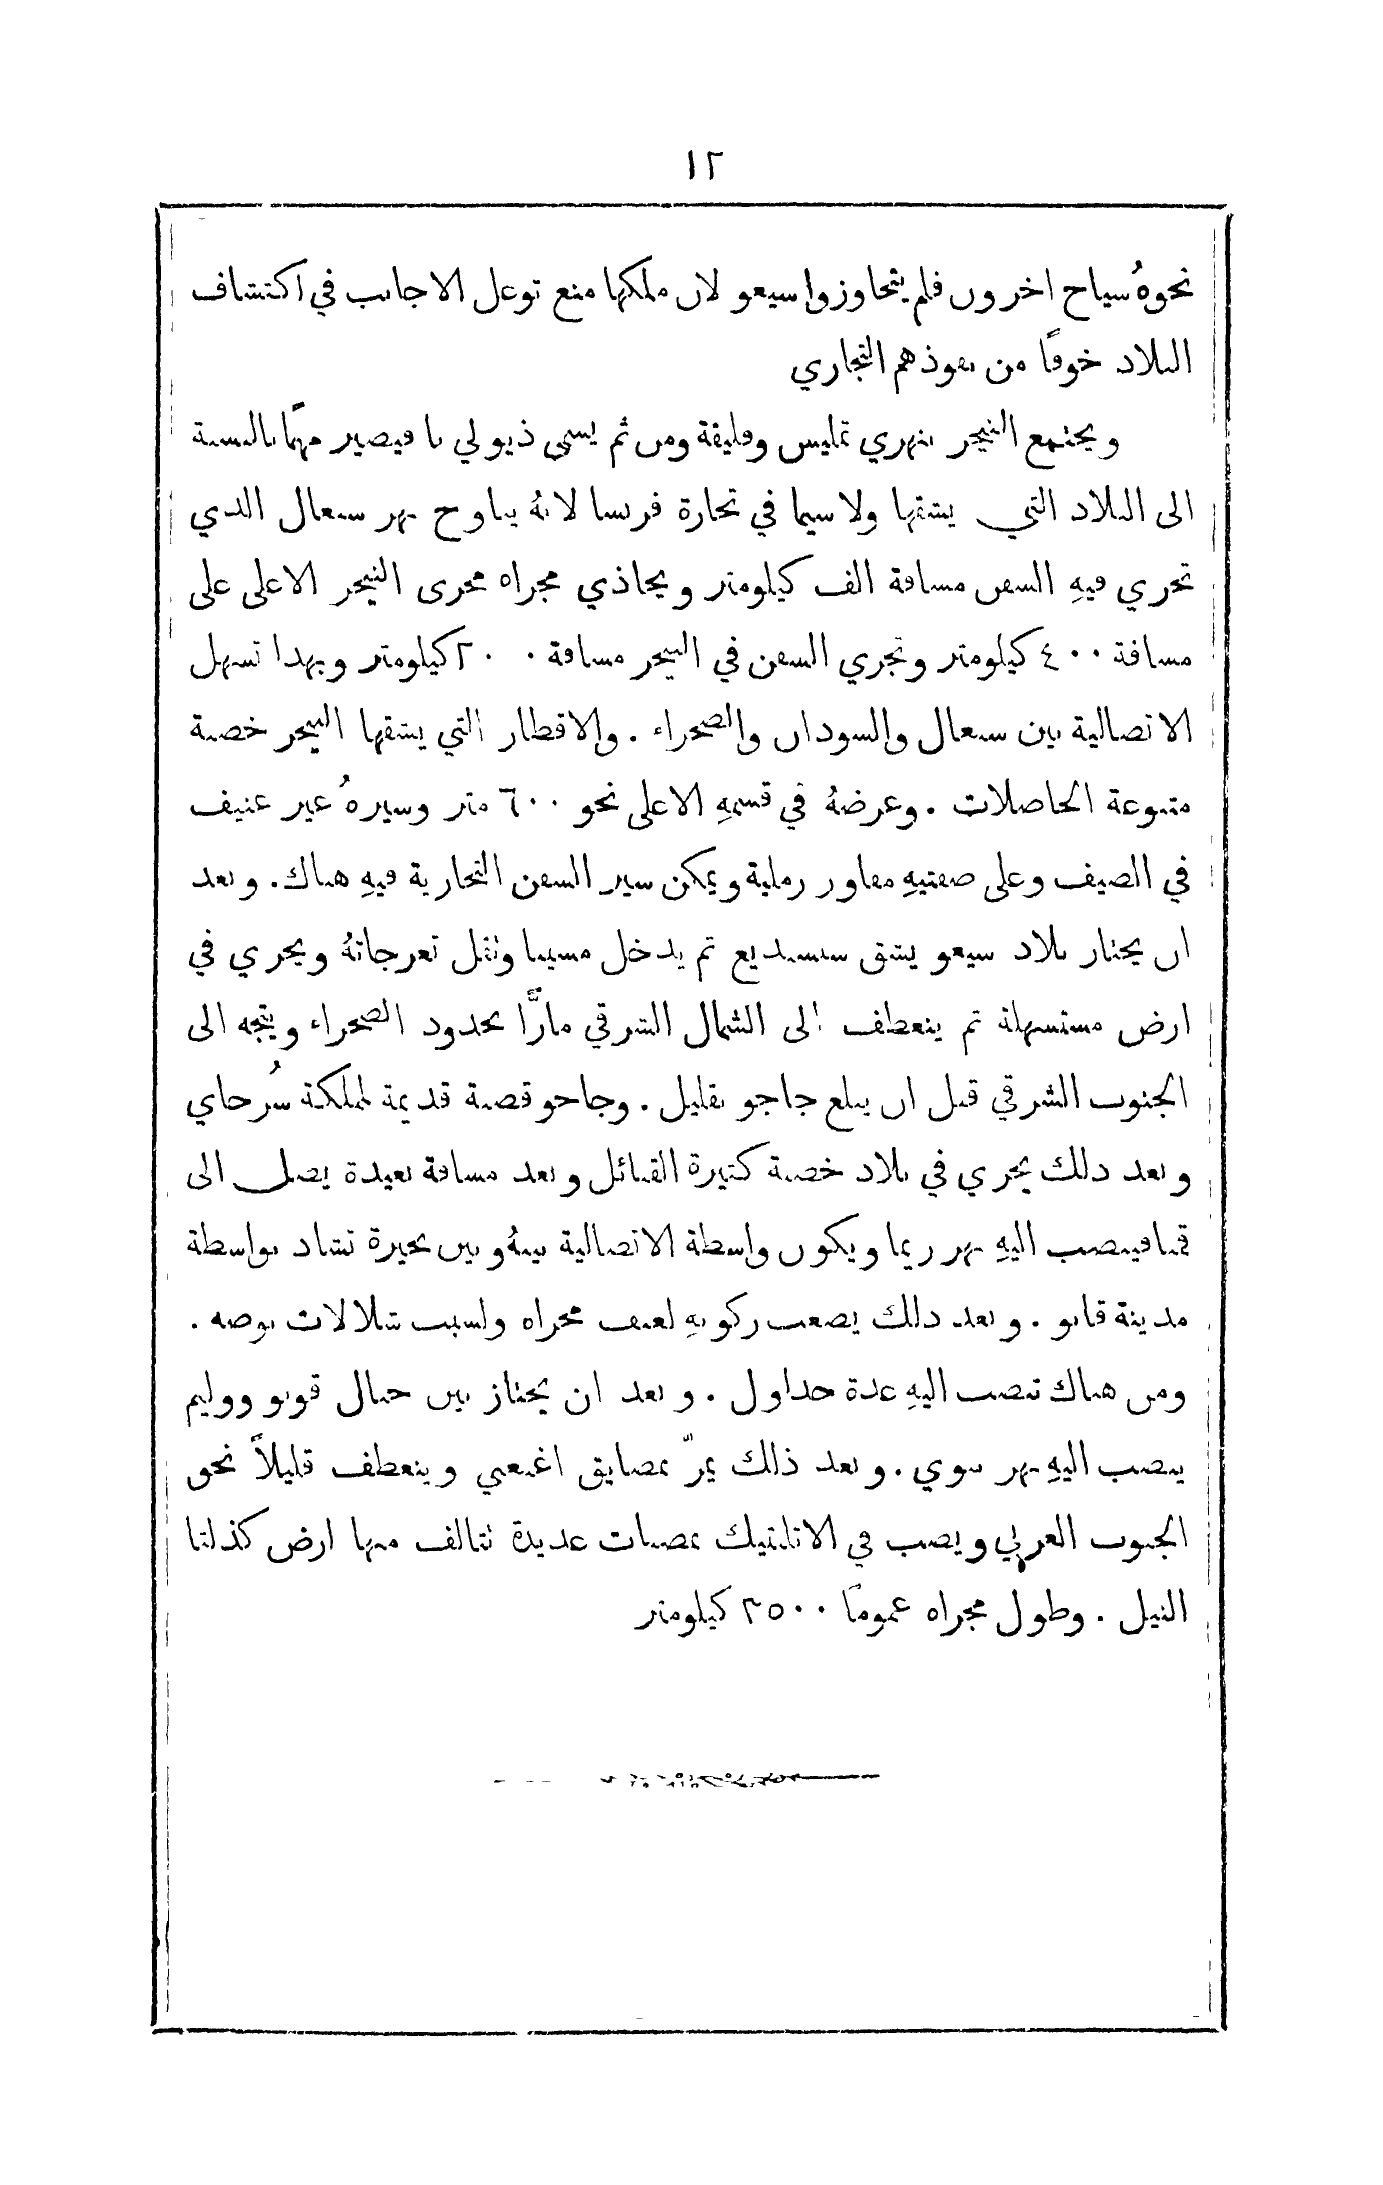 ١٢
نحوهُ سياح اخرون فلم يتجاوزوا سيغو لان ملكها منع توغل الاجانب في اكتشاف
البلاد خوفًا من نفوذهم التجاري
ويجتمع النيجر بنهري تمليس وفليفة ومن ثم يسمى ذيولي با فيصير مهمًا بالنسبة
الى البلاد التي يشقها ولا سيما في تجارة فرنسا لانهُ يناوح نهر سنغال الذي
تجري فيهِ السفن مسافة الف كيلومتر ويحاذي مجراه مجرى النيجر الاعلى على
مسافة ٤٠٠ كيلومتر وتجري السفن في النيجر مسافة ٢٠٠٠ كيلومتر وبهذا تسهل
الاتصالية بين سنغال والسودان والصحراء . والاقطار التي يشقها النيجر خصبة
متنوعة الحاصلات . وعرضهُ في قسمهِ الاعلى نحو ٦٠٠ متر وسيرهُ غير عنيف
في الصيف وعلى ضفتيهِ مفاور رملية ويمكن سير السفن التجارية فيهِ هناك . وبعد
ان يجتاز بلاد سيغو يشق سنسنديع ثم يدخل مسينا وتقل تعرجاتهُ ويجري في
ارض مستسهلة ثم ينعطف الى الشمال الشرقي مارًّا بحدود الصحراء ويتجه الى
الجنوب الشرقي قبل ان يبلغ جاجو بقليل . وجاجو قصبة قديمة لمملكة سُرحاي
وبعد ذلك يجري في بلاد خصبة كثيرة القبائل وبعد مسافة بعيدة يصل الى
فينصب اليهِ نهر ريما ويكون واسطة الاتصالية بينهُ وبين بحيرة تشاد بواسطة
مدينة قانو . وبعد ذلك يصعب ركوبهِ لعنف مجراه ولسبب شلالات بوصه .
ومن هناك تنصب اليهِ عدة جداول . وبعد ان يجتاز بين جبال قوبو ووليم
ينصب اليهِ نهر بنوي . وبعد ذلك يمرّ بمضايق اغبعبي وينعطف قليلاً نحو
الجنوب الغربي ويصب في الاتلنتيك بمصبات عديدة تتالف منها ارض كذلتا
النيل . وطول مجراه عمومًا ٣٥٠٠ كيلومتر